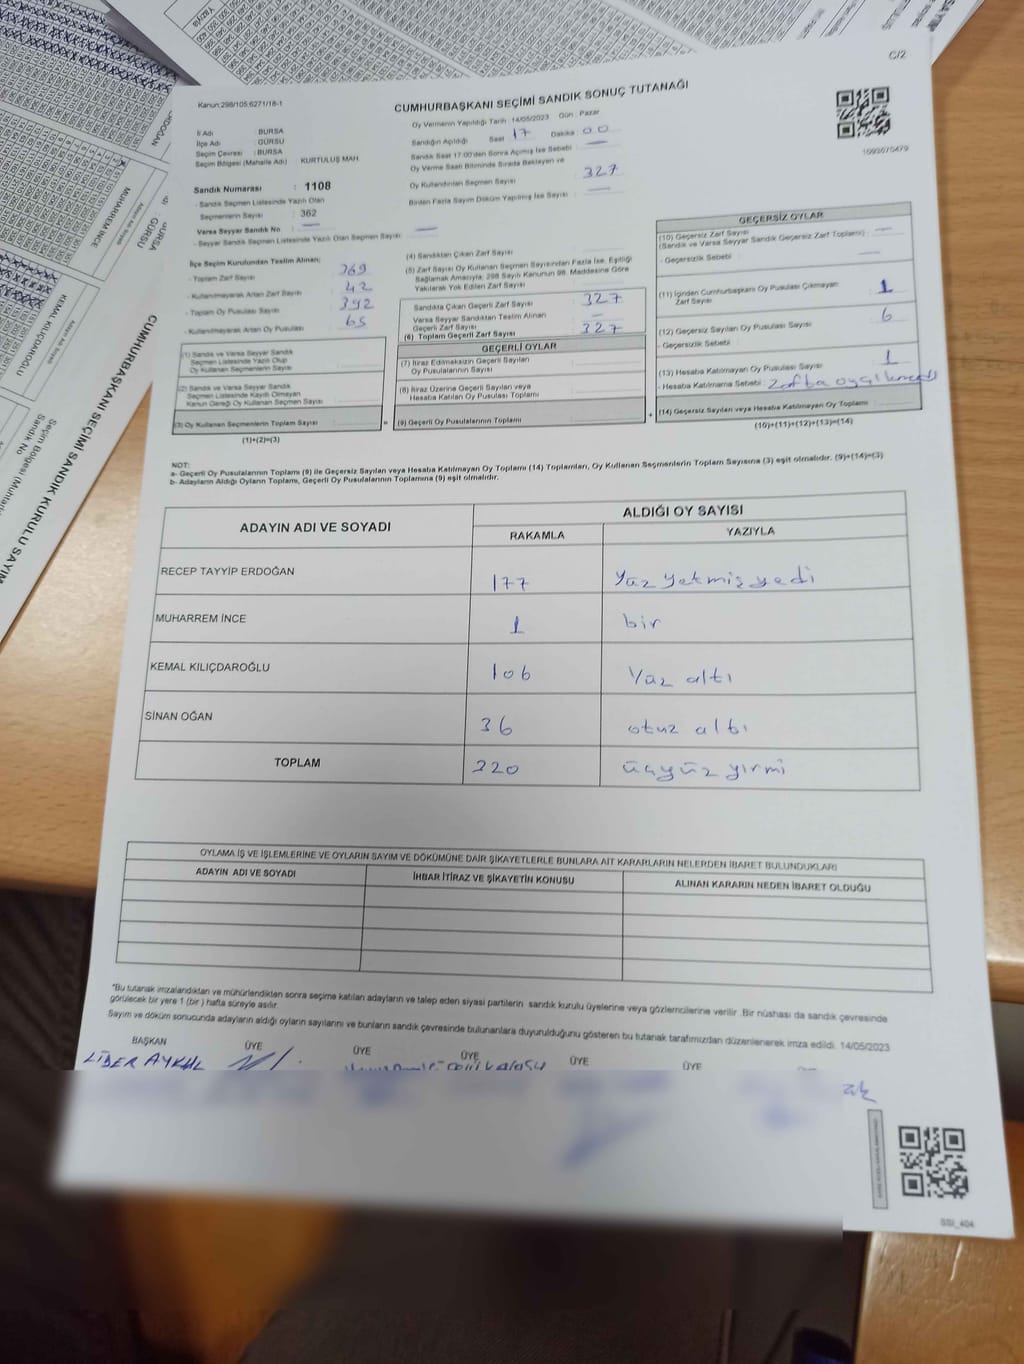 C/2
Kanun:298/105;6271/18-1
CUMHURBAŞKANI SEÇİMİ SANDIK SONUÇ TUTANAĞI
Oy Vermenin Yapıldığı Tarih :14/05/2023 Gün : Pazar
İl Adı : BURSA
İlçe Adı : GÜRSU
Seçim Çevresi : BURSA
Seçim Bölgesi (Mahalle Adı) KURTULUŞ MAH.
Sandığın Açıldığı Saat 17 Dakika 00
Sandık Saat 17:00'den Sonra Açılmış İse Sebebi : —
Oy Verme Saati Bitiminde Sırada Bekleyen ve
Oy Kullandırılan Seçmen Sayısı 327
Birden Fazla Sayım Döküm Yapılmış İse Sayısı : —
Sandık Numarası : 1108
- Sandık Seçmen Listesinde Yazılı Olan
Seçmenlerin Sayısı : 362
Varsa Seyyar Sandık No : —
- Seyyar Sandık Seçmen Listesinde Yazılı Olan Seçmen Sayısı : —
İlçe Seçim Kurulundan Teslim Alınan:
- Toplam Zarf Sayısı 369
- Kullanılmayarak Artan Zarf Sayısı 42
- Toplam Oy Pusulası Sayısı 392
- Kullanılmayarak Artan Oy Pusulası 65
(1) Sandık ve Varsa Seyyar Sandık
Seçmen Listesinde Yazılı Olup
Oy Kullanan Seçmenlerin Sayısı
(2) Sandık ve Varsa Seyyar Sandık
Seçmen Listesinde Kaydı Olmayan
Kanun Gereği Oy Kullanan Seçmen Sayısı
(3) Oy Kullanan Seçmenlerin Toplam Sayısı =
(1)+(2)=(3)
(4) Sandıktan Çıkan Zarf Sayısı
(5) Zarf Sayısı Oy Kullanan Seçmen Sayısından Fazla İse, Eşitliği
Sağlamak Amacıyla, 298 Sayılı Kanunun 98. Maddesine Göre
Yakılarak Yok Edilen Zarf Sayısı
Sandıkta Çıkan Geçerli Zarf Sayısı 327
Varsa Seyyar Sandıktan Teslim Alınan
Geçerli Zarf Sayısı —
(6) Toplam Geçerli Zarf Sayısı 327
GEÇERLİ OYLAR
(7) İtiraz Edilmeksizin Geçerli Sayılan
Oy Pusulalarının Sayısı
(8) İtiraz Üzerine Geçerli Sayılan veya
Hesaba Katılan Oy Pusulası Toplamı
(9) Geçerli Oy Pusulalarının Toplamı +
GEÇERSİZ OYLAR
(10) Geçersiz Zarf Sayısı
(Sandık ve Varsa Seyyar Sandık Geçersiz Zarf Toplamı) : —
- Geçersizlik Sebebi : —
(11) İçinden Cumhurbaşkanı Oy Pusulası Çıkmayan
Zarf Sayısı 1
(12) Geçersiz Sayılan Oy Pusulası Sayısı 6
- Geçersizlik Sebebi :
(13) Hesaba Katılmayan Oy Pusulası Sayısı 1
- Hesaba Katılmama Sebebi :
(14) Geçersiz Sayılan veya Hesaba Katılmayan Oy Toplamı
(10)+(11)+(12)+(13)=(14)
NOT:
a- Geçerli Oy Pusulalarının Toplamı (9) ile Geçersiz Sayılan veya Hesaba Katılmayan Oy Toplamı (14) Toplamları, Oy Kullanan Seçmenlerin Toplam Sayısına (3) eşit olmalıdır. (9)+(14)=(3)
b- Adayların Aldığı Oyların Toplamı, Geçerli Oy Pusulalarının Toplamına (9) eşit olmalıdır.
ADAYIN ADI VE SOYADI ALDIĞI OY SAYISI
RAKAMLA YAZIYLA
RECEP TAYYİP ERDOĞAN 177 Yüz yetmiş yedi
MUHARREM İNCE 1 bir
KEMAL KILIÇDAROĞLU 106 Yüz altı
SİNAN OĞAN 36 otuz altı
TOPLAM 320 üçyüz yirmi
OYLAMA İŞ VE İŞLEMLERİNE VE OYLARIN SAYIM VE DÖKÜMÜNE DAİR ŞİKAYETLERLE BUNLARA AİT KARARLARIN NELERDEN İBARET BULUNDUKLARI
ADAYIN ADI VE SOYADI İHBAR İTİRAZ VE ŞİKAYETİN KONUSU ALINAN KARARIN NEDEN İBARET OLDUĞU
*Bu tutanak imzalandıktan ve mühürlendikten sonra seçime katılan adayların ve talep eden siyasi partilerin sandık kurulu üyelerine veya gözlemcilerine verilir .Bir nüshası da sandık çevresinde
görülecek bir yere 1 (bir ) hafta süreyle asılır.
Sayım ve döküm sonucunda adayların aldığı oyların sayılarını ve bunların sandık çevresinde bulunanlara duyurulduğunu gösteren bu tutanak tarafımızdan düzenlenerek imza edildi. 14/05/2023
BAŞKAN ÜYE ÜYE ÜYE ÜYE ÜYE
SSI_404
MUHARREM İNCE
KEMAL KILIÇDAROĞLU
: GÜRSU
CUMHURBAŞKANI SEÇİMİ SANDIK KURULU SAYIM
Sandık No